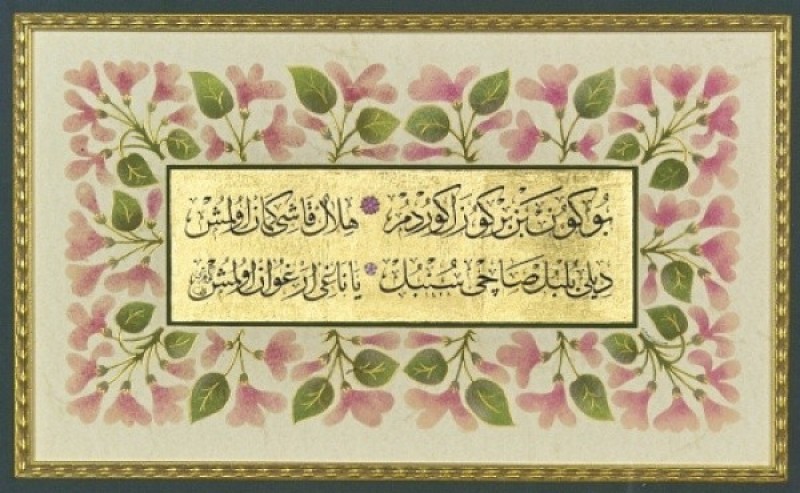 بُو كُونْ بَنْ بِرْ كُوزَلْ كُورْدُمْ هِلَالْ قَاشِی كَمَانْ اُولْمِشْ
دِیلِی بُلْبُلْ صَاچِی سُنْبُلْ یَاناغِی اَرْغَوَانْ اُولْمِشْ